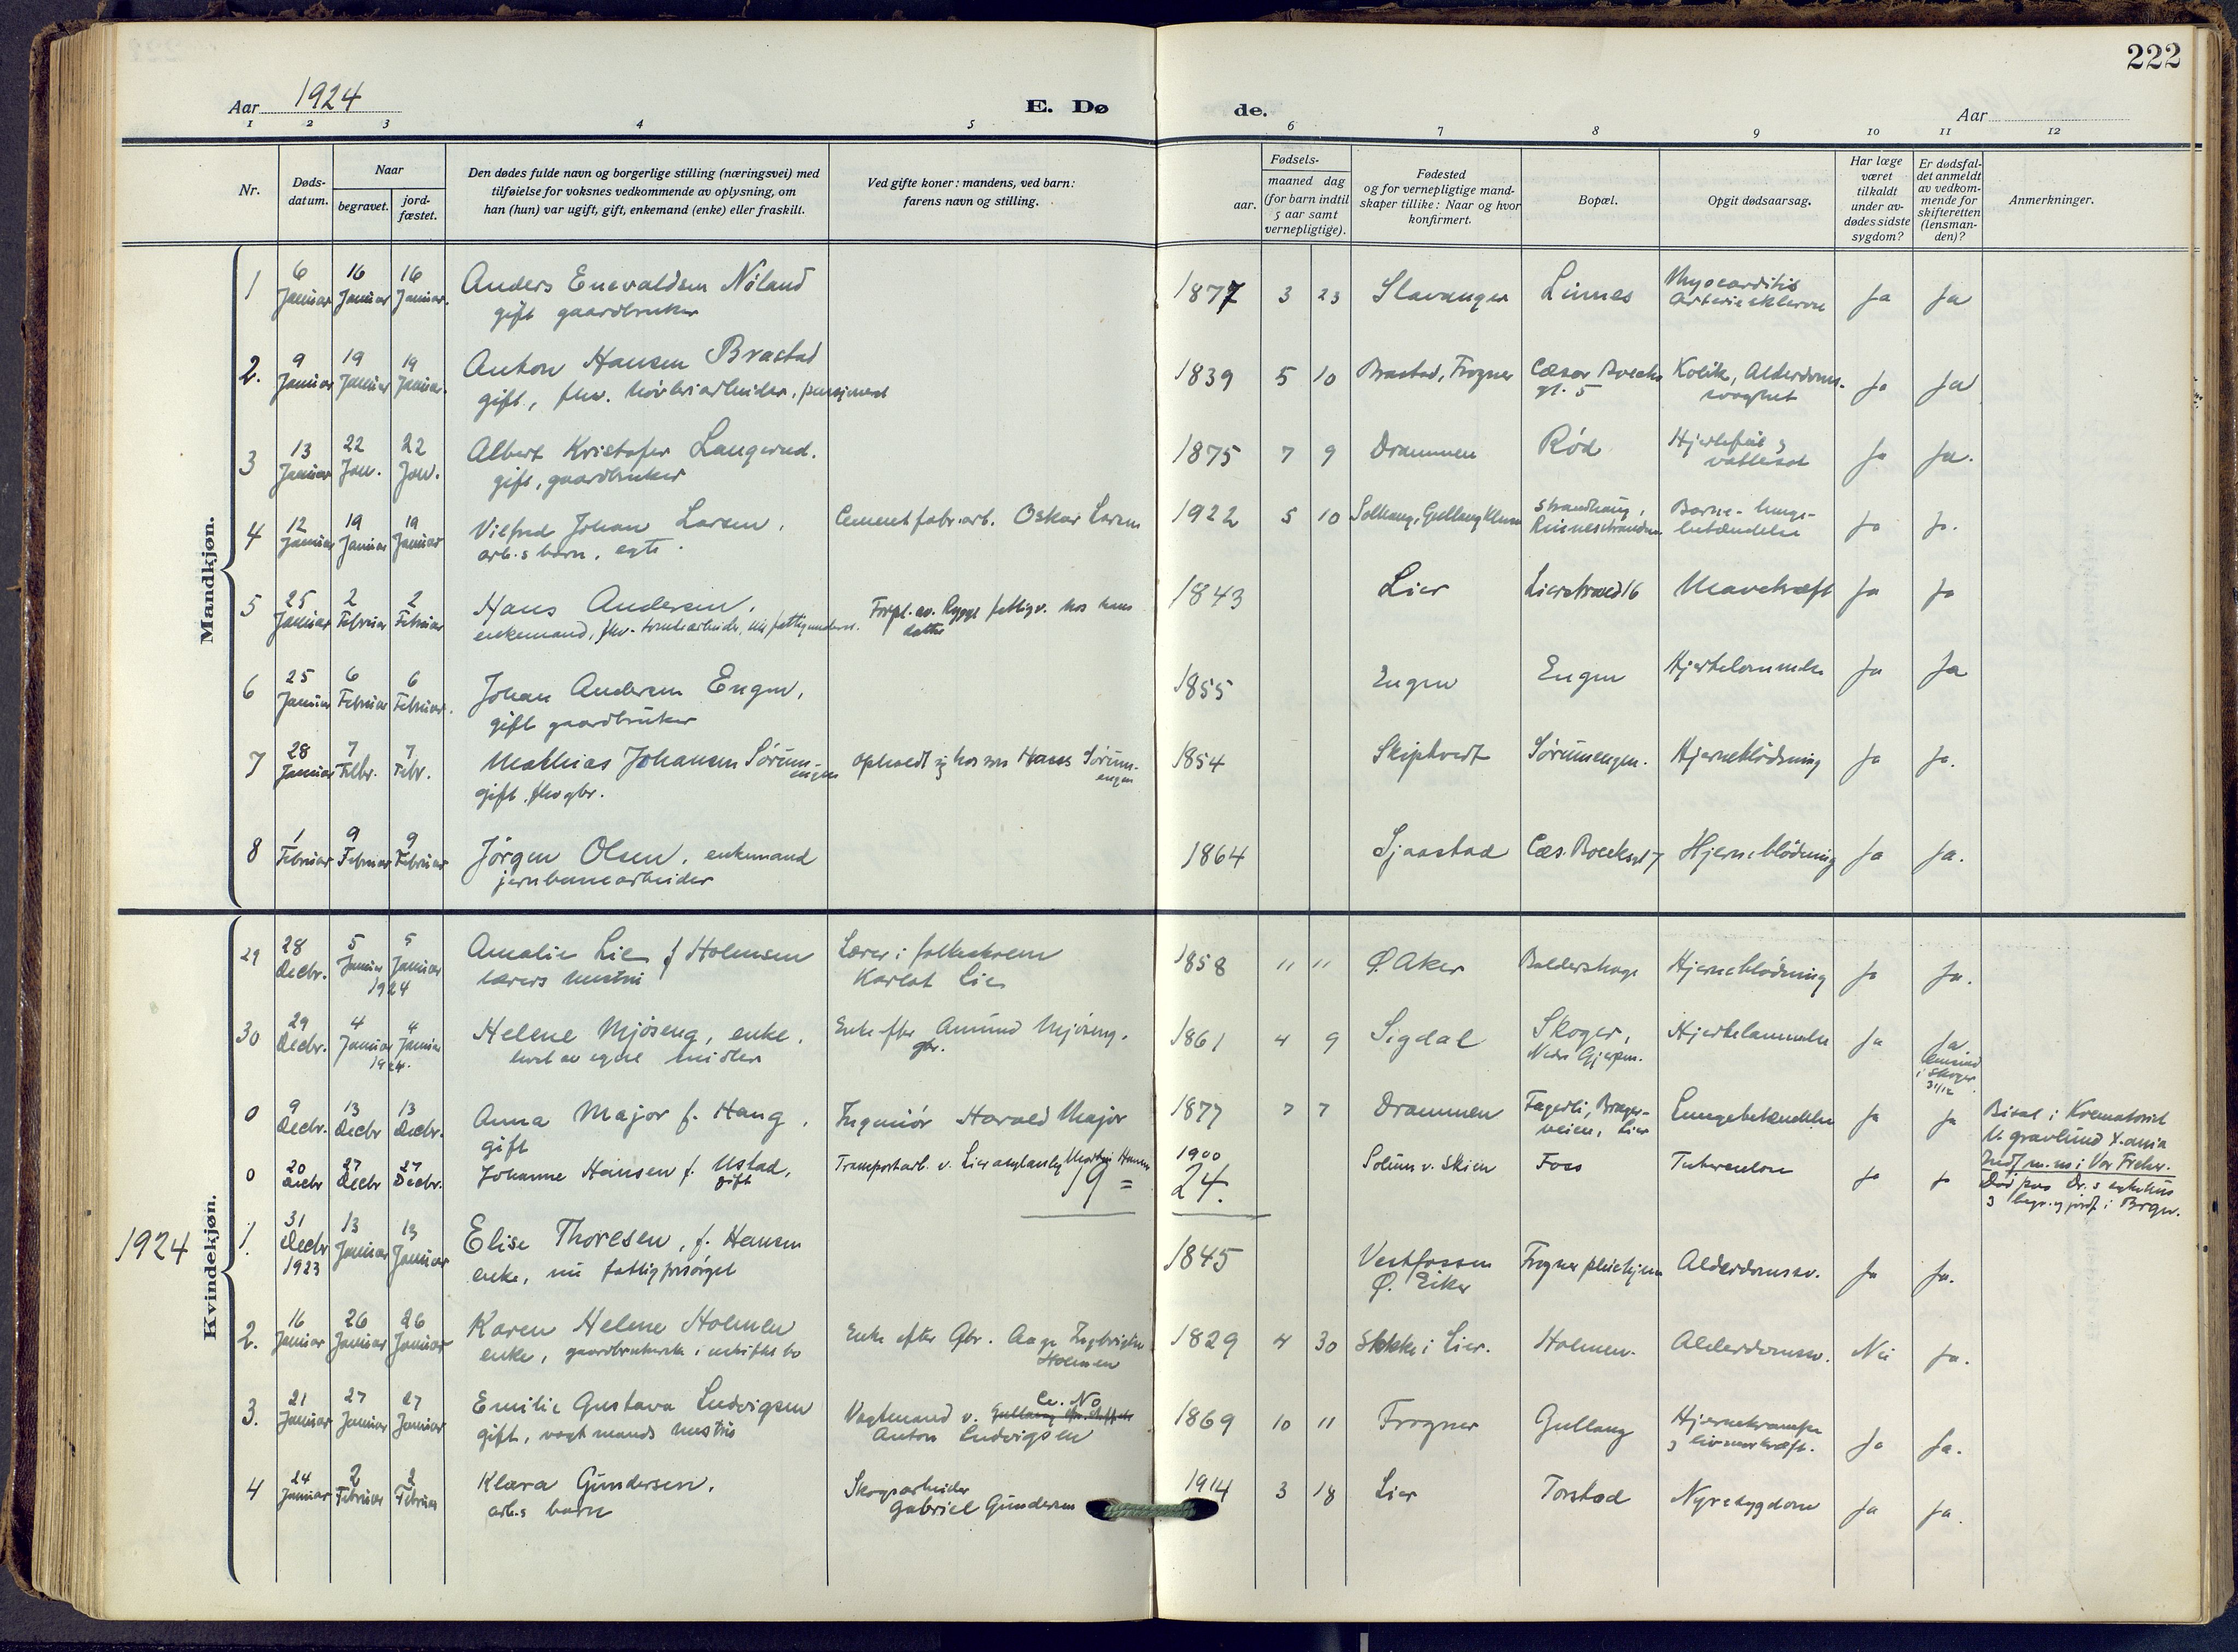 222
Aar 1924
E. Dø
de.
Aar
1 2 3 4 5 6 7 8 9 10 11 12
Nr.
Døds-
datum.
Naar
begravet.
jord-
fæstet.
Den dødes fulde navn og borgerlige stilling (næringsvei) med
tilføielse for voksnes vedkommende av oplysning, om
han (hun) var ugift, gift, enkemand (enke) eller fraskilt.
Ved gifte koner: mandens, ved barn:
farens navn og stilling.
Fødsels-
aar.
maaned dag
(for barn indtil
5 aar samt
vernepligtige).
Fødested
og for vernepligtige mand-
skaper tillike: Naar og hvor
konfirmert.
Bopæl.
Opgit dødsaarsag.
Har læge
været
tilkaldt
under av-
dødes sidste
sygdom?
Er dødsfal-
det anmeldt
av vedkom-
mende for
skifteretten
(lensman-
den)?
Anmerkninger.
Mandkjøn.
1 6 Januar 16 Januar 16 Januar. Anders Enevaldsen Nöland 1877 3 23 Stavanger Linnes Myocarditis Ja Ja
gift gaardbruker Arteriesklerose
2. 9 Januar 19 Januar 19 Januar. Anton Hansen Brastad 1839 5 10 Brastad, Frogner Cæsar Boecks Kolik, Alderdoms- Ja Ja
gift, fhv. høvleriarbeider, pensjonert gt. 5 svaghet
3 13 Januar 22 Jan. 22 Jan. Albert Kristofer Langerud. 1875 7 9 Drammen Rød Hjertefeil og Ja Ja.
gift, gaardbruker vattersot
4 12 Januar 19 Januar 19 Januar Vilfred Johan Larsen, Cementfabr.arb. Oskar Larsen 1922 5 10 Solhaug, Gullaug Strandhaug, Barne-lunge- Ja Ja.
arb.s barn, egte. betændelse
5 25 Januar 2 Februar 2 Februar Hans Andersen, Forpl. av fattigv. hos hans 1843 Lier Lierstrand 16 Mavekræft Ja Ja
enkemand, fhv. datter
6 25 Januar 6 Februar 6 Februar. Johan Andersen Engen, 1855 Engen Engen Hjertelammelse Ja Ja
gift gaardbruker
7 28 Januar 7 Febr. 7 Febr. Mathias Johansen Sørum- opholdt sig hos søn Hans Sörum- 1854 Skiptvedt Sørumengen. Hjerneblödning Ja Ja.
engen engen
gift. fhv gbr.
8 1 Februar 9 Februar 9 Februar Jörgen Olsen, enkemand 1864 Sjaastad Cæs. Boecksgt 7 Hjerneblödning Ja Ja.
jernbanearbeider
Kvindekjøn.
29 28 Decbr. 5 Januar 5 Januar Amalie Lie f Holmsen Lærer i folkeskolen 1858 " " Ø. Aker Baldershage Hjerneblödning Ja Ja.
1924 lærers hustru Karlot Lie
30 29 Decbr. 4 Januar 4 Januar Helene Mjöseng, enke, Enke efter Amund Mjöseng, 1861 4 9 Sigdal Skoger, Hjertelammelse Ja Ja
1924. levet av egne midler gbr. Nedre Gjerpen.
i Skoger
31/12
0 9 Decbr. 13 Decbr 13 Decbr. Anna Major f. Haug, Ingeniör Harald Major 1877 7 7 Drammen Fagerli, Brager- Lungebetændelse Ja Ja Bisat i Krematoriet
gift veien, Lier
0 20 Decbr 27 Decbr 27 Decbr. Johanne Hansen f. Ustad, Transportarb. v. Lier asylanlæg Martin Hansen 1900 Solum v. Skien Foss Tuberculose Ja Ja
gift
19 = 24.
Död paa Dr.s sykehus
1924
1. 31 Decbr 1923 13 Januar 13 Januar Elise Thoresen, f. Hansen 1845 Vestfossen Frogner pleiehjem Alderdomssv. Ja Ja.
enke, nu fattigforsörget Ø. Eiker
2. 16 Januar 26 Januar 26 Januar Karen Helene Holmen Enke efter Gbr. Aage Ingebrigtsen 1829 4 30 Stokke i Lier. Holmen. Alderdomssv. Nei Ja.
enke, gaardbrukerske i uskiftet bo Holmen
3. 21 Januar 27 Januar 27 Januar Emilie Gustava Ludvigsen Vagtmand v. 1869 10 11 Frogner Gullaug Hjernekrampe Ja Ja.
gift, vagtmands hustru Anton Ludvigsen og livmorkræft.
4 24 Januar 2 Februar 2 Februar Klara Gundersen, Skogsarbeider 1914 3 18 Lier Torstad Nyresygdom Ja Ja.
arb.s barn Gabriel Gundersen